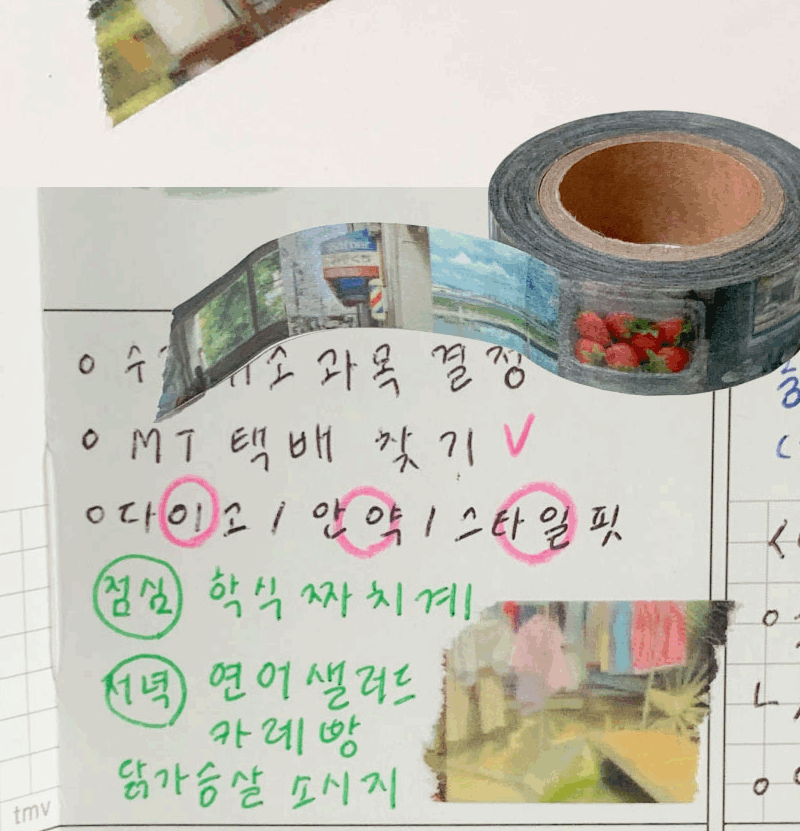 과목 결정
○ MT 택배 찾기 V
○ 다이소 / 안약 / 스타일핏
점심 학식 짜치계
저녁 연어샐러드
카레빵
닭가슴살 소시지
tmv